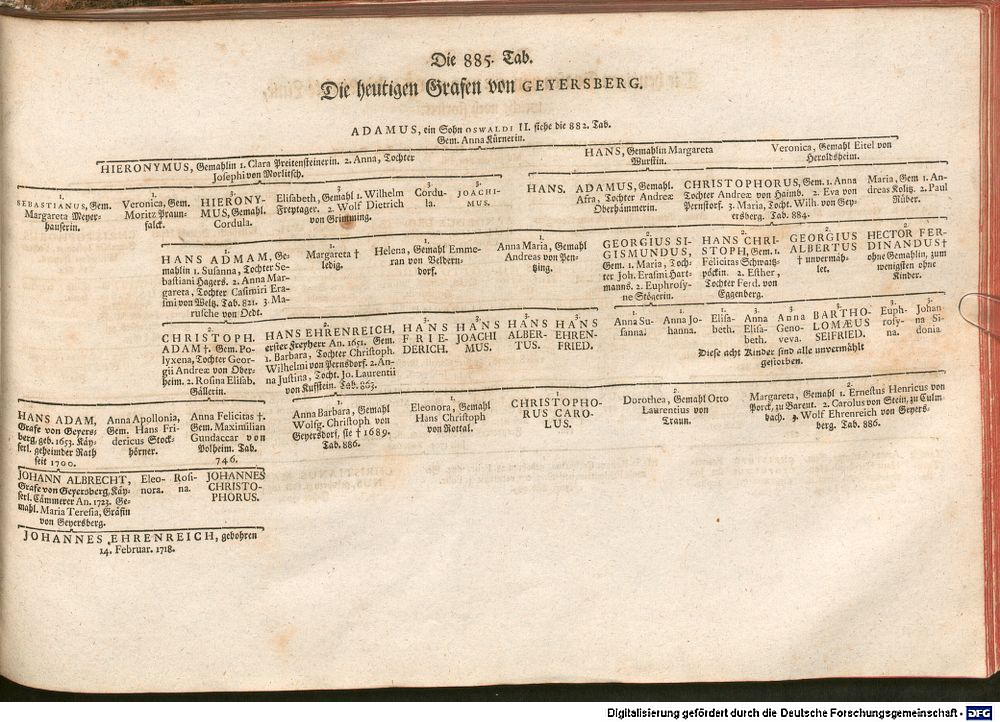 Die 885. Tab.
Die heutigen Grafen von GEYERSBERG.
ADAMUS, ein Sohn OSWALDI II. siehe die 882. Tab.
Gem. Anna Kürnerin.
HIERONYMUS, Gemahlin 1. Clara Preitensteinerin. 2. Anna, Tochter
Josephi von Morlitsch.
HANS, Gemahlin Margareta
Wurstin.
Veronica, Gemahl Eitel von
Heroldsheim.
1.
SEBASTIANUS, Gem.
Margareta Meyer-
hauserin.
1.
Veronica, Gem.
Moritz Praun-
falck.
3.
HIERONY-
MUS, Gemahl.
Cordula.
3
Elisabeth, Gemahl 1. Wilhelm
Freytager. 2. Wolf Dietrich
von Grimming.
3.
Cordu-
la.
3.
JOACHI-
MUS.
HANS.
ADAMUS, Gemahl.
Afra, Tochter Andreæ
Oberhämmerin.
CHRISTOPHORUS, Gem. 1. Anna
Tochter Andreæ von Haimb. 2. Eva von
Pernstorf. 3. Maria, Tocht. Wilh. von Gey-
ersberg. Tab. 884.
Maria, Gem 1. An-
dreas Kolitz. 2. Paul
Rüber.
1.
HANS ADMAM, Ge-
mahlin 1. Susanna, Tochter Se-
bastiani Hagers. 2. Anna Mar-
gareta, Tochter Casimiri Era-
smi von Weltz. Tab. 821. 3. Ma-
rusche von Oedt.
1.
Margareta †
ledig.
1.
Helena, Gemahl Emme-
ran von Veldern-
dorf.
1.
Anna Maria, Gemahl
Andreas von Pen-
tzing.
2.
GEORGIUS SI-
GISMUNDUS,
Gem. 1. Maria, Toch-
ter Joh. Erasmi Hart-
manns. 2. Euphrosy-
ne Stögerin.
2.
HANS CHRI-
STOPH, Gem. 1.
Felicitas Schwartz-
pöckin. 2. Esther,
Tochter Ferd. von
Eggenberg.
2.
GEORGIUS
ALBERTUS
† unvermäh-
let.
2.
HECTOR FER-
DINANDUS †
ohne Gemahlin, zum
wenigsten ohne
Kinder.
2.
CHRISTOPH.
ADAM †. Gem. Po-
lyxena, Tochter Geor-
gii Andreæ von Ober-
heim. 2. Rosina Elisab.
Gällerin.
2.
HANS EHRENREICH,
erster Freyherr An. 1651. Gem.
1. Barbara, Tochter Christoph.
Wilhelmi von Pernsdorf. 2. An-
na Justina, Tocht. Jo. Laurentii
von Kuffstein. Tab. 863.
3.
HANS
FRIE-
DERICH.
3.
HANS
JOACHI
MUS.
3.
HANS
ALBER-
TUS.
3.
HANS
EHREN-
FRIED.
1.
Anna Su-
sanna.
1.
Anna Jo-
hanna.
1.
Elisa-
beth.
3
Anna
Elisa-
beth.
3
Anna
Geno-
veva.
3.
BARTHO-
LOMÆUS
SEIFRIED.
3.
Euph-
rosy-
na.
3.
Johan
na Si-
donia
Diese acht Kinder sind alle unvermählt
gestorben.
HANS ADAM,
Grafe von Geyers-
berg, geb. 1653. Käy-
serl. geheimder Rath
seit 1700.
Anna Apollonia,
Gem. Hans Fri-
dericus Stock-
hörner.
Anna Felicitas †.
Gem. Maximilian
Gundaccar von
Polheim. Tab.
746.
1.
Anna Barbara, Gemahl
Wolfg. Christoph von
Geyersdorf, sie † 1689.
Tab. 886.
1.
Eleonora, Gemahl
Hans Christoph
von Rottal.
1
CHRISTOPHO-
RUS CARO-
LUS.
2.
Dorothea, Gemahl Otto
Laurentius von
Traun.
2.
Margareta, Gemahl 1. Ernestus Henricus von
Porck, zu Barent. 2. Carolus von Stein, zu Culm-
bach. 3. Wolf Ehrenreich von Geyers-
berg. Tab. 886.
JOHANN ALBRECHT,
Grafe von Geyersberg, Käy-
serl. Cämmerer An. 1723. Ge-
mahl. Maria Teresia, Gräfin
von Geyersberg.
Eleo-
nora.
Rosi-
na.
JOHANNES
CHRISTO-
PHORUS.
JOHANNES EHRENREICH, gebohren
14. Februar. 1718.
Digitalisierung gefördert durch die Deutsche Forschungsgemeinschaft - DFG